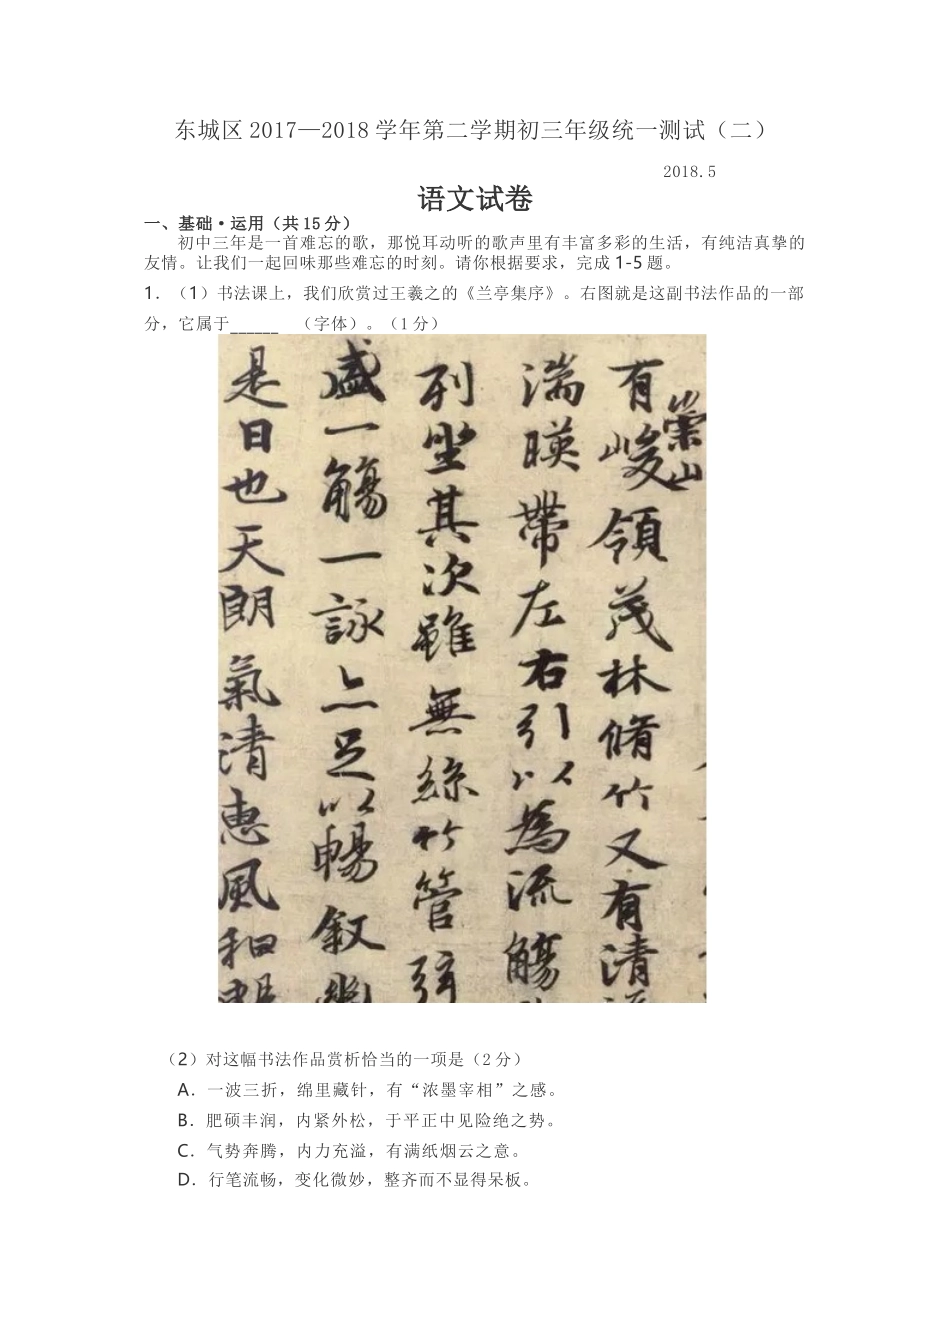 东城区 2017—2018 学年第二学期初三年级统一测试（二）
2018.5
语文试卷
一、基础·运用（共 15 分）
初中三年是一首难忘的歌，那悦耳动听的歌声里有丰富多彩的生活，有纯洁真挚的
友情。让我们一起回味那些难忘的时刻。请你根据要求，完成 1-5 题。
1．（1）书法课上，我们欣赏过王羲之的《兰亭集序》。右图就是这副书法作品的一部
分，它属于______ （字体）。（1 分）
崇山
有峻領茂林脩竹又有清
湍暎帶左右引以為流觴
列坐其次雖無絲竹管弦
盛一觴一詠亦足以暢叙幽
是日也天朗氣清惠風和暢
（2）对这幅书法作品赏析恰当的一项是（2 分）
A．一波三折，绵里藏针，有“浓墨宰相”之感。
B．肥硕丰润，内紧外松，于平正中见险绝之势。
C．气势奔腾，内力充溢，有满纸烟云之意。
D．行笔流畅，变化微妙，整齐而不显得呆板。